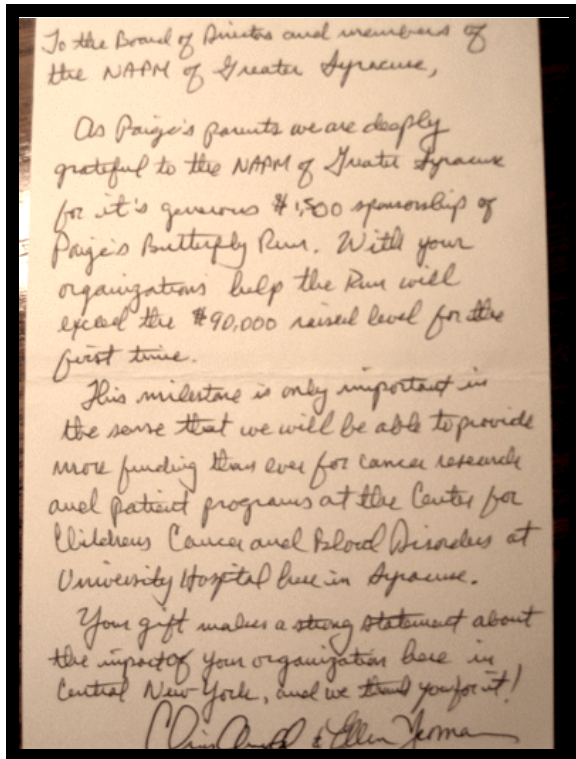 To the Board of Directors and members of
the NAPM of Greater Syracuse,
As Paige's parents we are deeply
grateful to the NAPM of Greater Syracuse
for it's generous $1,500 sponsorship of
Paige's Butterfly Run. With your
organizations help the Run will
exceed the $90,000 raised level for the
first time.
This milestone is only important in
the sense that we will be able to provide
more funding than ever for cancer research
and patient programs at the Center for
Childrens Cancer and Blood Disorders at
University Hospital here in Syracuse.
Your gift makes a strong statement about
the impact of your organization here in
Central New York, and we thank you for it!
Chris Arnold & Ellen Yeomans